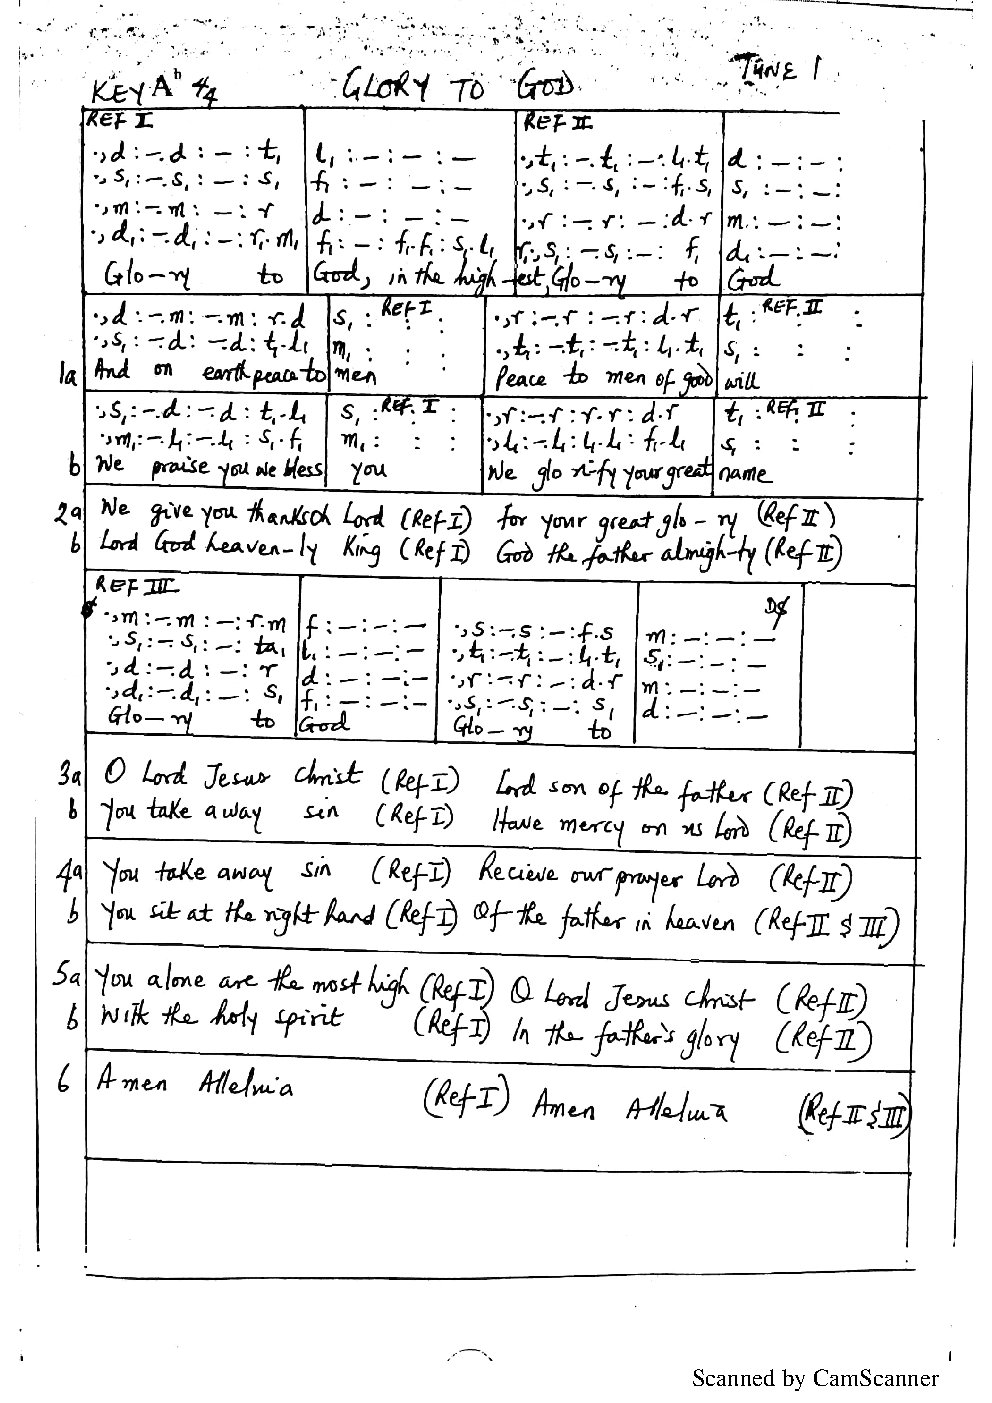 TUNE 1
KEY Ah 4/4 GLORY TO GOD
REF I REF II
.,d:-.d:-:t₁ l₁:-:-:- .,t₁:-.t₁:-:l₁.t₁ d:-:-:
.,s₁:-.s₁:-:s₁ f₁:-:-:- .,s₁:-.s₁:-:f₁.s₁ s₁:-:-:
.,m:-.m:-:r d:-:-:- .,r:-.r:-:d.r m:-:-:
.,d₁:-.d₁:-:r₁.m₁ f₁:-:f₁.f₁:s₁.l₁ r₁,s₁:-.s₁:-: f₁ d₁:-:-:
Glo-ry to God, in the high-est, Glo-ry to God
.,d:-.m:-.m:r.d s₁: REF I : .,r:-.r:-.r:d.r t₁: REF II :
.,s₁:-.d:-.d:t₁.l₁ m₁: : : .,t₁:-.t₁:-.t₁:l₁.t₁ s₁: : :
1a And on earth peace to men Peace to men of good will
.,s₁:-.d:-.d:t₁.l₁ s₁: REF. I : .,r:-.r:r.r:d.r t₁: REF II :
.,m₁:-.l₁:-.l₁:s₁.f₁ m₁: : : .,l₁:-.l₁:l₁.l₁:f₁.l₁ s₁: : :
b We praise you we bless you We glo ri-fy your great name
2a We give you thanksoh Lord (Ref I) for your great glo-ry (Ref II)
b Lord God heaven-ly King (Ref I) God the father almigh-ty (Ref II)
REF III
.,m:-.m:-:r.m f:-:-:- .,s:-.s:-:f.s m:-:-:- D𝄋
.,s₁:-.s₁:-:ta₁ l₁:-:-:- .,t₁:-.t₁:-:l₁.t₁ s₁:-:-:-
.,d:-.d:-:r d:-:-:- .,r:-.r:-:d.r m:-:-:-
.,d₁:-.d₁:-:s₁ f₁:-:-:- .,s₁:-.s₁:-:s₁ d:-:-:-
Glo-ry to God Glo-ry to
3a O Lord Jesus Christ (Ref I) Lord son of the father (Ref II)
b You take away sin (Ref I) Have mercy on us Lord (Ref II)
4a You take away sin (Ref I) Recieve our prayer Lord (Ref II)
b You sit at the right hand (Ref I) Of the father in heaven (Ref II & III)
5a You alone are the most high (Ref I) O Lord Jesus Christ (Ref II)
b With the holy spirit (Ref I) In the father's glory (Ref II)
6 Amen Alleluia (Ref I) Amen Alleluia (Ref II & III)
Scanned by CamScanner